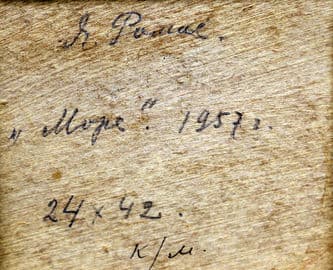 Я. Ромас.
„Море". 1957 г.
24 х 42.
к/м.